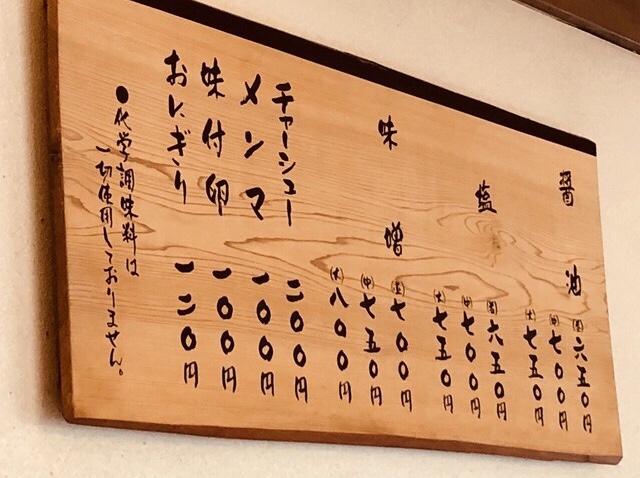 醤油
六五〇円
㊥七〇〇円
大七五〇円
塩
六五〇円
㊥七〇〇円
大七五〇円
味増
七〇〇円
㊥七五〇円
大八〇〇円
チャーシュー 二〇〇円
メンマ 一〇〇円
味付卵 一〇〇円
おにぎり 一二〇円
●化学調味料は
一切使用しておりません。